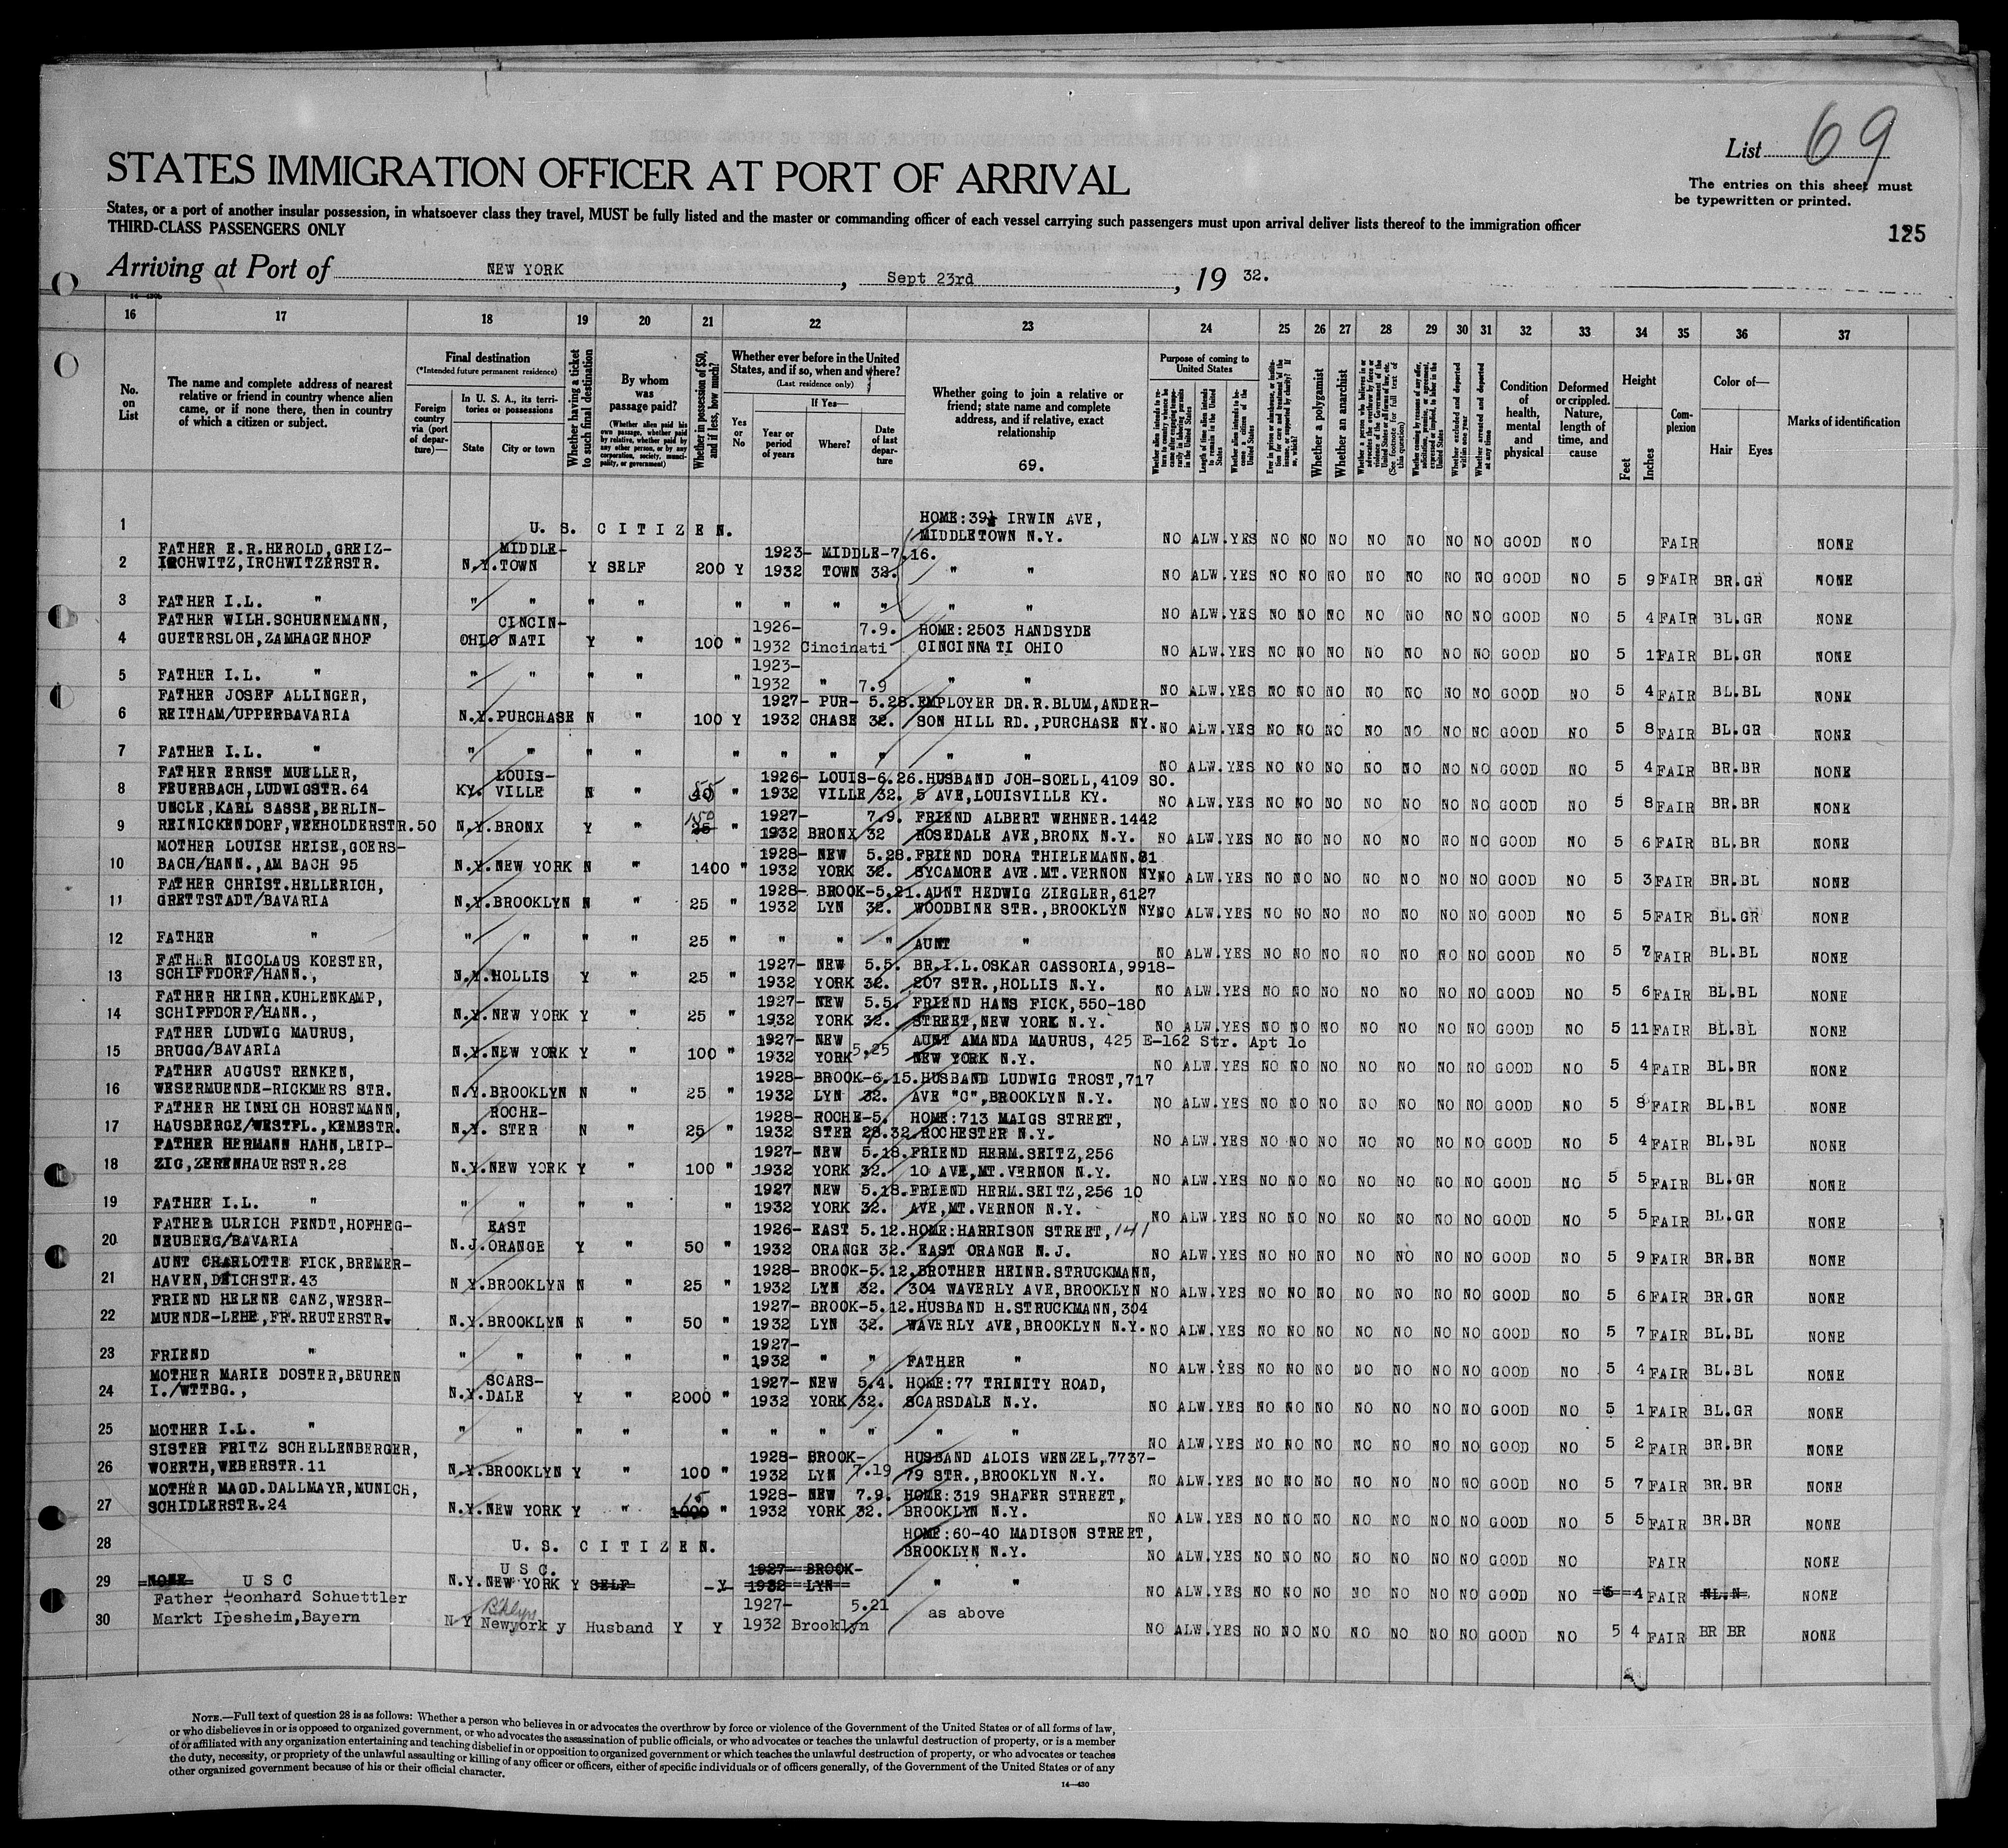 List 69
STATES IMMIGRATION OFFICER AT PORT OF ARRIVAL
The entries on this sheet must
be typewritten or printed.
States, or a port of another insular possession, in whatsoever class they travel, MUST be fully listed and the master or commanding officer of each vessel carrying such passengers must upon arrival deliver lists thereof to the immigration officer
THIRD-CLASS PASSENGERS ONLY
125
Arriving at Port of NEW YORK, Sept 23rd, 19 32.
16 17 18 19 20 21 22 23 24 25 26 27 28 29 30 31 32 33 34 35 36 37
No. on List
The name and complete address of nearest relative or friend in country whence alien came, or if none there, then in country of which a citizen or subject.
Final destination
(*Intended future permanent residence)
Foreign country via (port of departure)—
In U. S. A., its territories or possessions
State City or town
Whether having a ticket to such final destination
By whom was passage paid?
(Whether alien paid his own passage, whether paid by relative, whether paid by any other person, or by any corporation, society, municipality, or government)
Whether in possession of $50, and if less, how much?
Whether ever before in the United States, and if so, when and where?
(Last residence only)
Yes or No
If Yes—
Year or period of years
Where?
Date of last departure
Whether going to join a relative or friend; state name and complete address, and if relative, exact relationship
69.
Purpose of coming to United States
Whether a polygamist
Whether an anarchist
Whether excluded and deported within one year
Whether arrested and deported at any time
Condition of health, mental and physical
Deformed or crippled. Nature, length of time, and cause
Height
Feet Inches
Complexion
Color of—
Hair Eyes
Marks of identification
1 U. S. CITIZEN. HOME:39½ IRWIN AVE, MIDDLETOWN N.Y. NO ALW. YES NO NO NO NO NO NO NO GOOD NO FAIR NONE
2 FATHER E.R.HEROLD,GREIZ-IRCHWITZ,IRCHWITZERSTR. N.Y. MIDDLE-TOWN Y SELF 200 Y 1923-1932 MIDDLE-TOWN 7.16.32. " " NO ALW. YES NO NO NO NO NO NO NO GOOD NO 5 9 FAIR BR.GR NONE
3 FATHER I.L. " " " " " " " " " " " NO ALW. YES NO NO NO NO NO NO NO GOOD NO 5 4 FAIR BL.GR NONE
4 FATHER WILH.SCHUENEMANN, GUETERSLOH,ZAMHAGENHOF OHIO CINCIN-NATI Y " 100 " 1926-1932 Cincinati 7.9. HOME:2503 HANDSYDE CINCINNATI OHIO NO ALW. YES NO NO NO NO NO NO NO GOOD NO 5 11 FAIR BL.GR NONE
5 FATHER I.L. " " " " " " 1923-1932 " 7.9 " " NO ALW. YES NO NO NO NO NO NO NO GOOD NO 5 4 FAIR BL.BL NONE
6 FATHER JOSEF ALLINGER, REITHAM/UPPERBAVARIA N.Y. PURCHASE N " 100 Y 1927-1932 PUR-CHASE 5.28.32. EMPLOYER DR.R.BLUM,ANDER-SON HILL RD.,PURCHASE NY. NO ALW. YES NO NO NO NO NO NO NO GOOD NO 5 8 FAIR BL.GR NONE
7 FATHER I.L. " " " " " " " " " " " NO ALW. YES NO NO NO NO NO NO NO GOOD NO 5 4 FAIR BR.BR NONE
8 FATHER ERNST MUELLER, FEUERBACH,LUDWIGSTR.64 KY. LOUIS-VILLE N " 55 " 1926-1932 LOUIS-VILLE 6.26.32. HUSBAND JOH-SOELL,4109 SO. 5 AVE,LOUISVILLE KY. NO ALW. YES NO NO NO NO NO NO NO GOOD NO 5 8 FAIR BR.BR NONE
9 UNCLE,KARL SASSE,BERLIN-REINICKENDORF,WEEHOLDERSTR.50 N.Y. BRONX Y " 150 25 " 1927-1932 BRONX 7.9.32 FRIEND ALBERT WEHNER.1442 ROSEDALE AVE,BRONX N.Y. NO ALW. YES NO NO NO NO NO NO NO GOOD NO 5 6 FAIR BL.BR NONE
10 MOTHER LOUISE HEISE,GOERS-BACH/HANN.,AM BACH 95 N.Y. NEW YORK N " 1400 " 1928-1932 NEW YORK 5.28.32. FRIEND DORA THIELEMANN.81 SYCAMORE AVE.MT.VERNON NY. NO ALW. YES NO NO NO NO NO NO NO GOOD NO 5 3 FAIR BR.BL NONE
11 FATHER CHRIST.HELLERICH, GRETTSTADT/BAVARIA N.Y. BROOKLYN N " 25 " 1928-1932 BROOK-LYN 5.21.32. AUNT HEDWIG ZIEGLER,6127 WOODBINE STR.,BROOKLYN NY. NO ALW. YES NO NO NO NO NO NO NO GOOD NO 5 5 FAIR BL.GR NONE
12 FATHER " " " " " 25 " " " " AUNT " NO ALW. YES NO NO NO NO NO NO NO GOOD NO 5 7 FAIR BL.BL NONE
13 FATHER NICOLAUS KOESTER, SCHIFFDORF/HANN., N.Y. HOLLIS Y " 25 " 1927-1932 NEW YORK 5.5.32. BR.I.L.OSKAR CASSORIA,9918-207 STR.,HOLLIS N.Y. NO ALW. YES NO NO NO NO NO NO NO GOOD NO 5 6 FAIR BL.BL NONE
14 FATHER HEINR.KUHLENKAMP, SCHIFFDORF/HANN., N.Y. NEW YORK Y " 25 " 1927-1932 NEW YORK 5.5.32. FRIEND HANS FICK,550-180 STREET,NEW YORK N.Y. NO ALW. YES NO NO NO NO NO NO NO GOOD NO 5 11 FAIR BL.BL NONE
15 FATHER LUDWIG MAURUS, BRUGG/BAVARIA N.Y. NEW YORK Y " 100 " 1927-1932 NEW YORK 5.25 AUNT AMANDA MAURUS, 425 E-162 Str. Apt 1o NEW YORK N.Y. NO ALW. YES NO NO NO NO NO NO NO GOOD NO 5 4 FAIR BL.BR NONE
16 FATHER AUGUST RENKEN, WESERMUENDE-RICKMERS STR. N.Y. BROOKLYN N " 25 " 1928-1932 BROOK-LYN 6.15.32. HUSBAND LUDWIG TROST,717 AVE "C",BROOKLYN N.Y. NO ALW. YES NO NO NO NO NO NO NO GOOD NO 5 8 FAIR BL.BL NONE
17 FATHER HEINRICH HORSTMANN, HAUSBERGE/WESTFL.,KEMBSTR. N.Y. ROCHE-STER N " 25 " 1928-1932 ROCHE-STER 5.28.32. HOME:713 MAIGS STREET, ROCHESTER N.Y. NO ALW. YES NO NO NO NO NO NO NO GOOD NO 5 4 FAIR BL.BL NONE
18 FATHER HERMANN HAHN,LEIP-ZIG,ZERENHAUERSTR.28 N.Y. NEW YORK Y " 100 " 1927-1932 NEW YORK 5.18.32. FRIEND HERM.SEITZ,256 10 AVE,MT.VERNON N.Y. NO ALW. YES NO NO NO NO NO NO NO GOOD NO 5 5 FAIR BL.GR NONE
19 FATHER I.L. " " " " " " 1927 1932 NEW YORK 5.18.32. FRIEND HERM.SEITZ,256 10 AVE,MT.VERNON N.Y. NO ALW. YES NO NO NO NO NO NO NO GOOD NO 5 5 FAIR BL.GR NONE
20 FATHER ULRICH FENDT,HOFHEG-NEUBERG/BAVARIA N.J. EAST ORANGE Y " 50 " 1926-1932 EAST ORANGE 5.12.32. HOME:HARRISON STREET, 141 EAST ORANGE N.J. NO ALW. YES NO NO NO NO NO NO NO GOOD NO 5 9 FAIR BR.BR NONE
21 AUNT CHARLOTTE FICK,BREMER-HAVEN,DEICHSTR.43 N.Y. BROOKLYN N " 25 " 1928-1932 BROOK-LYN 5.12.32. BROTHER HEINR.STRUCKMANN, 304 WAVERLY AVE,BROOKLYN NO ALW. YES NO NO NO NO NO NO NO GOOD NO 5 6 FAIR BR.GR NONE
22 FRIEND HELENE CANZ,WESER-MUENDE-LEHE,FR.REUTERSTR. N.Y. BROOKLYN N " 50 " 1927-1932 BROOK-LYN 5.12.32. HUSBAND H.STRUCKMANN,304 WAVERLY AVE,BROOKLYN N.Y. NO ALW. YES NO NO NO NO NO NO NO GOOD NO 5 7 FAIR BL.BL NONE
23 FRIEND " " " " " " 1927-1932 " " FATHER " NO ALW. YES NO NO NO NO NO NO NO GOOD NO 5 4 FAIR BL.BL NONE
24 MOTHER MARIE DOSTER,BEUREN I./WTTBG., N.Y. SCARS-DALE Y " 2000 " 1927-1932 NEW YORK 5.4.32. HOME:77 TRINITY ROAD, SCARSDALE N.Y. NO ALW. YES NO NO NO NO NO NO NO GOOD NO 5 1 FAIR BL.GR NONE
25 MOTHER I.L. " " " " " " " " " " " NO ALW. YES NO NO NO NO NO NO NO GOOD NO 5 2 FAIR BR.BR NONE
26 SISTER FRITZ SCHELLENBERGER, WOERTH,WEBERSTR.11 N.Y. BROOKLYN Y " 100 " 1928-1932 BROOK-LYN 7.19 HUSBAND ALOIS WENZEL,7737-79 STR.,BROOKLYN N.Y. NO ALW. YES NO NO NO NO NO NO NO GOOD NO 5 7 FAIR BR.BR NONE
27 MOTHER MAGD.DALLMAYR,MUNICH, SCHIDLERSTR.24 N.Y. NEW YORK Y " 15 1000 " 1928-1932 NEW YORK 7.9.32. HOME:319 SHAFER STREET, BROOKLYN N.Y. NO ALW. YES NO NO NO NO NO NO NO GOOD NO 5 5 FAIR BR.BR NONE
28 U. S. CITIZEN. HOME:60-40 MADISON STREET, BROOKLYN N.Y. NO ALW. YES NO NO NO NO NO NO NO GOOD NO FAIR NONE
29 NONE USC N.Y. USC. NEW YORK Y SELF Y 1927-1932 BROOK-LYN " " NO ALW. YES NO NO NO NO NO NO NO GOOD NO 5 4 FAIR NL.N. NONE
30 Father Leonhard Schuettler Markt Ipesheim,Bayern N Y Bklyn Newyork y Husband Y Y 1927-1932 Brooklyn 5.21 as above NO ALW. YES NO NO NO NO NO NO NO GOOD NO 5 4 FAIR BR BR NONE
NOTE.—Full text of question 28 is as follows: Whether a person who believes in or advocates the overthrow by force or violence of the Government of the United States or of all forms of law,
or who disbelieves in or is opposed to organized government, or who advocates the assassination of public officials, or who advocates or teaches the unlawful destruction of property, or is a member
of or affiliated with any organization entertaining and teaching disbelief in or opposition to organized government or which teaches the unlawful destruction of property, or who advocates or teaches
the duty, necessity, or propriety of the unlawful assaulting or killing of any officer or officers, either of specific individuals or of officers generally, of the Government of the United States or of any
other organized government because of his or their official character.
14—430